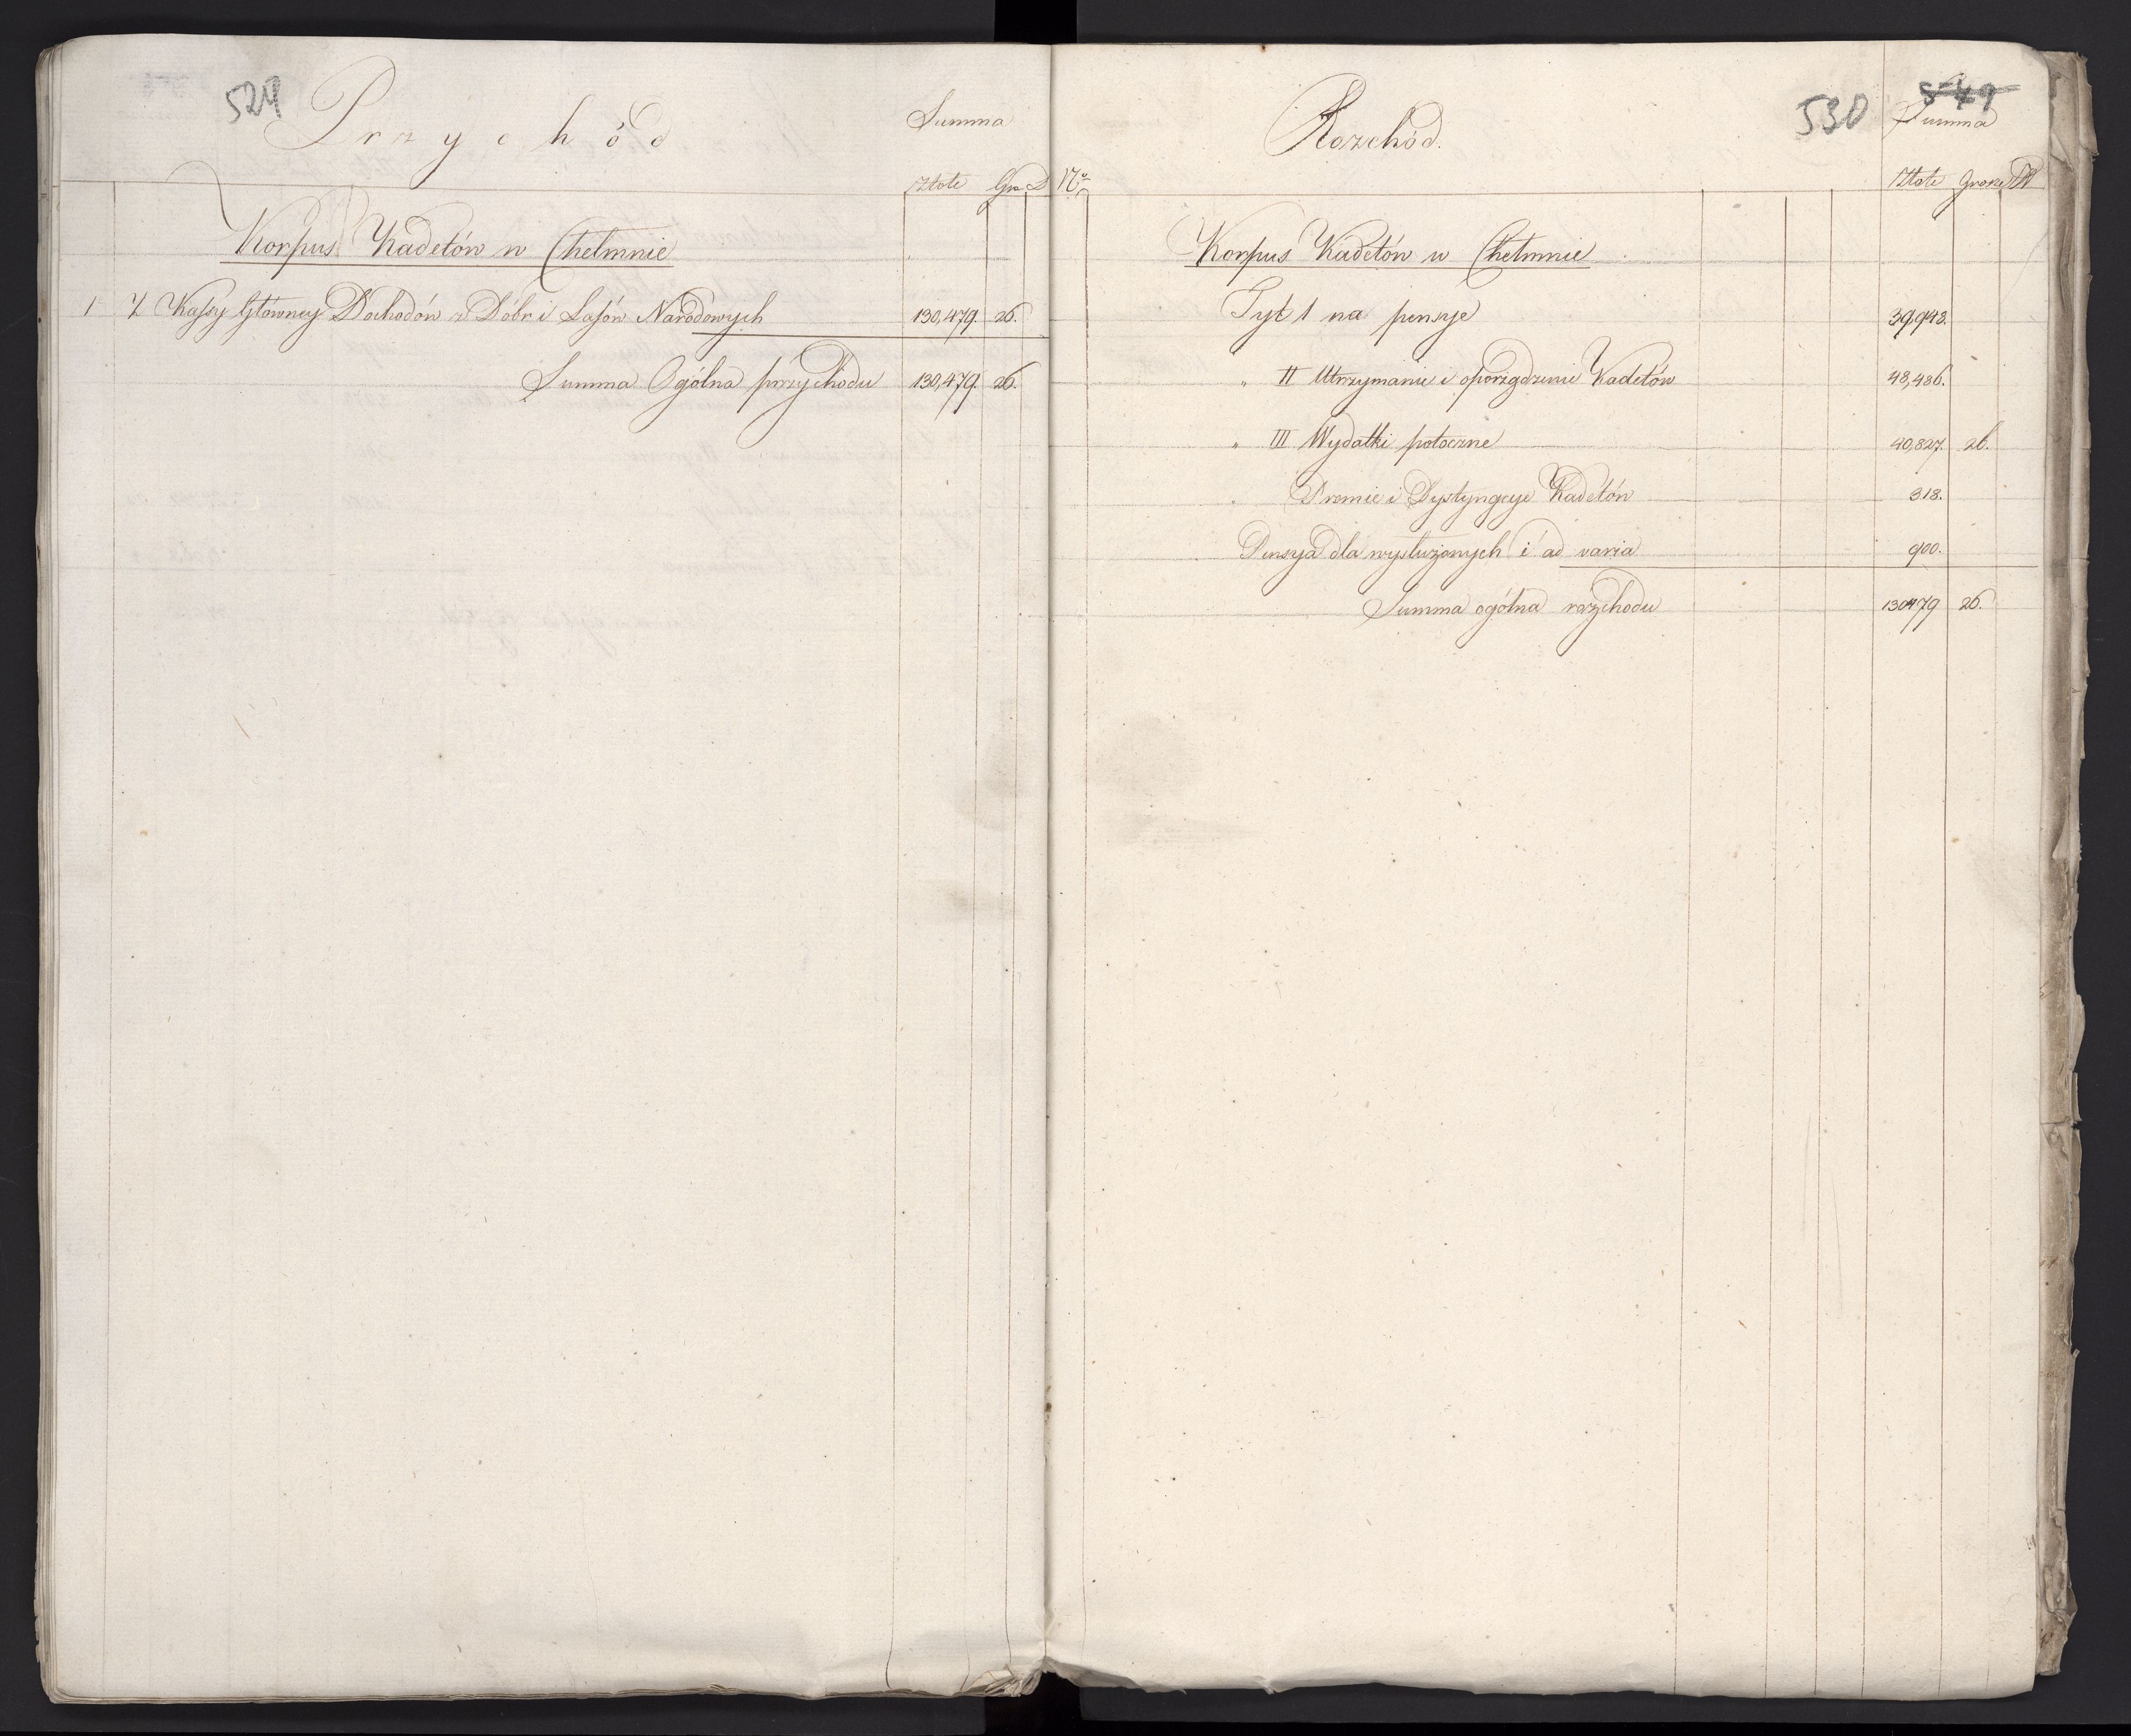 529
Przychód
Summa
Złote Gr. D
Korpus Kadetów w Chełmnie
1 Z Kassy Główney Dochodów z Dóbr i Lasów Narodowych 130,479. 26.
Summa Ogólna przychodu 130,479. 26.
549
530
Rozchód.
Summa
No
Złote Grosze
Korpus Kadetów w Chełmnie
Tyt 1 na pensye 39,948.
" II Utrzymanie i oporządzenie Kadetów 48,486.
" III Wydatki potoczne 40,827. 26.
" Premie i Dystyngcye Kadetów 318.
Pensya dla wysłużonych i ad varia 900.
Summa ogólna rozchodu 130479 26.